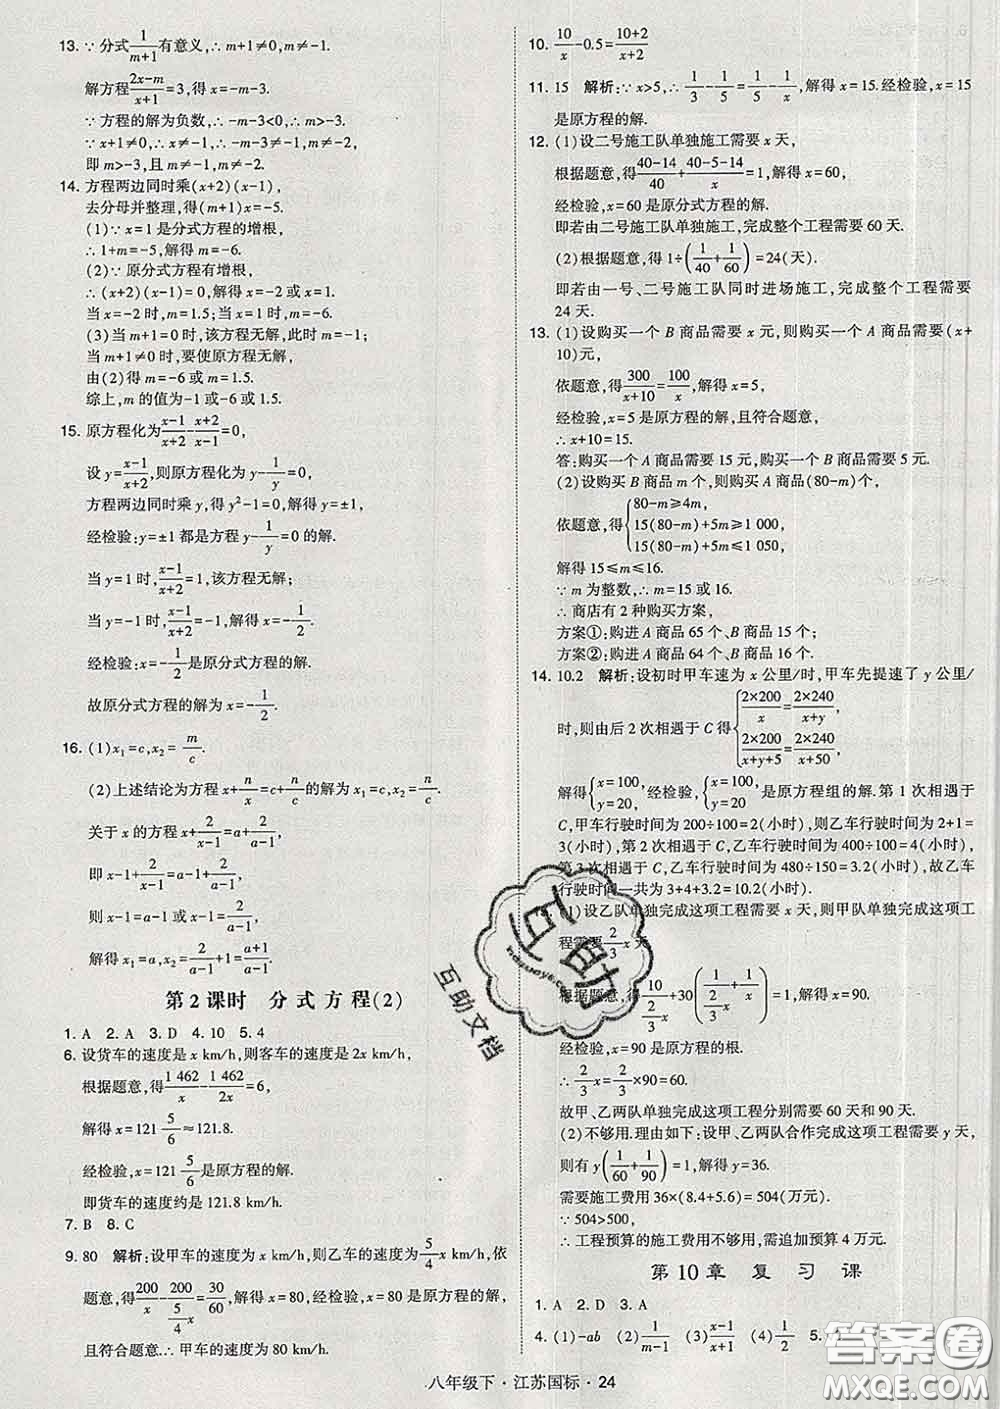 13. ∵ 分式1/(m+1)有意义,∴ m+1≠0,m≠-1.
解方程(2x-m)/(x+1)=3,得 x=-m-3.
∵ 方程的解为负数,∴ -m-3<0,∴ m>-3.
∵ x+1≠0,∴ x≠-1,∴ -m-3≠-1,m≠-2,
即 m>-3,且 m≠-1,m≠-2.
14. 方程两边同时乘(x+2)(x-1),
去分母并整理,得(m+1)x=-5.
(1)∵ x=1 是分式方程的增根,
∴ 1+m=-5,解得 m=-6.
(2)∵ 原分式方程有增根,
∴ (x+2)(x-1)=0,解得 x=-2或 x=1.
当 x=-2 时,m=1.5;当 x=1 时,m=-6.
(3)当 m+1=0 时,该方程无解,此时 m=-1;
当 m+1≠0 时,要使原方程无解,
由(2)得 m=-6或 m=1.5.
综上,m 的值为-1 或-6或 1.5.
15. 原方程化为(x-1)/(x+2)-(x+2)/(x-1)=0,
设 y=(x-1)/(x+2),则原方程化为 y-1/y=0,
方程两边同时乘 y,得 y²-1=0,解得 y=±1,
经检验:y=±1 都是方程 y-1/y=0 的解.
当 y=1 时,(x-1)/(x+2)=1,该方程无解;
当 y=-1 时,(x-1)/(x+2)=-1,解得 x=-1/2.
经检验:x=-1/2是原分式方程的解,
故原分式方程的解为 x=-1/2.
16. (1)x₁=c,x₂=m/c.
(2)上述结论为方程 x+n/x=c+n/c的解为 x₁=c,x₂=n/c,
关于 x 的方程 x+2/(x-1)=a+2/(a-1),
即 x-1+2/(x-1)=a-1+2/(a-1),
则 x-1=a-1 或 x-1=2/(a-1),
解得 x₁=a,x₂=2/(a-1)+1=(a+1)/(a-1).
第 2 课时 分式方程(2)
1. A 2. A 3. D 4. 10 5. 4
6. 设货车的速度是 x km/h,则客车的速度是 2x km/h,
根据题意,得1 462/x-1 462/2x=6,
解得 x=121 5/6≈121.8.
经检验,x=121 5/6是原方程的解.
即货车的速度约是 121.8 km/h.
7. B 8. C
9. 80 解析:设甲车的速度为 x km/h,则乙车的速度为5/4x km/h,依
题意,得200/x-200/(5/4x)=30/60,解得 x=80,经检验,x=80 是原方程的解,
且符合题意.∴ 甲车的速度为 80 km/h.
10. 10/x-0.5=(10+2)/(x+2)
11. 15 解析:∵ x>5,∴ 1/3-1/5=1/5-1/x,解得 x=15.经检验,x=15
是原方程的解.
12. (1)设二号施工队单独施工需要 x 天,
根据题意,得(40-14)/40+(40-5-14)/x=1,解得 x=60,
经检验,x=60 是原分式方程的解.
即若由二号施工队单独施工,完成整个工程需要 60 天.
(2)根据题意,得 1÷(1/40+1/60)=24(天).
即若由一号、二号施工队同时进场施工,完成整个工程需要
24 天.
13. (1)设购买一个 B 商品需要 x 元,则购买一个 A 商品需要(x+
10)元,
依题意,得300/(x+10)=100/x,解得 x=5,
经检验,x=5 是原方程的解,且符合题意,
∴ x+10=15.
答:购买一个 A 商品需要 15 元,购买一个 B 商品需要 5 元.
(2)设购买 B 商品 m 个,则购买 A 商品(80-m)个,
依题意,得{80-m≥4m,
15(80-m)+5m≥1 000,
15(80-m)+5m≤1 050,
解得 15≤m≤16.
∵ m 为整数,∴ m=15 或 16.
∴ 商店有 2 种购买方案,
方案①:购进 A 商品 65 个、B 商品 15 个;
方案②:购进 A 商品 64 个、B 商品 16 个.
14. 10.2 解析:设初时甲车速为 x 公里/时,甲车先提速了 y 公里/
时,则由后 2 次相遇于 C 得{2×200/x=2×240/(x+y),
2×200/(x+y+5)=2×240/(x+50),
解得{x=100,y=20,经检验,{x=100,y=20是原方程组的解.第 1 次相遇于
C,甲车行驶时间为 200÷100=2(小时),则乙车行驶时间为 2+1=
3(小时),第 2 次相遇于 C,乙车行驶时间为 400÷100=4(小时),
第 3 次相遇于 C,乙车行驶时间为 480÷150=3.2(小时),故乙车
行驶时间一共为 3+4+3.2=10.2(小时).
(1)设乙队单独完成这项工程需要 x 天,则甲队单独完成这项工
程需要2/3x 天
根据题意,得10/(2/3x)+30(1/(2/3x)+1/x)=1,解得 x=90.
经检验,x=90 是原方程的根.
∴ 2/3x=2/3×90=60.
故甲、乙两队单独完成这项工程分别需要 60 天和 90 天.
(2)不够用.理由如下:设甲、乙两队合作完成这项工程需要 y 天,
则有 y(1/60+1/90)=1,解得 y=36.
需要施工费用 36×(8.4+5.6)=504(万元).
∵ 504>500,
∴ 工程预算的施工费用不够用,需追加预算 4 万元.
第 10 章 复 习 课
1. A 2. D 3. A
4. (1)-ab (2)1/(m-1) (3)(x-1)/(x+3) (4)1/2 5.
八年级下·江苏国标·24
互助
互助文档
答案圈
MXQE.COM